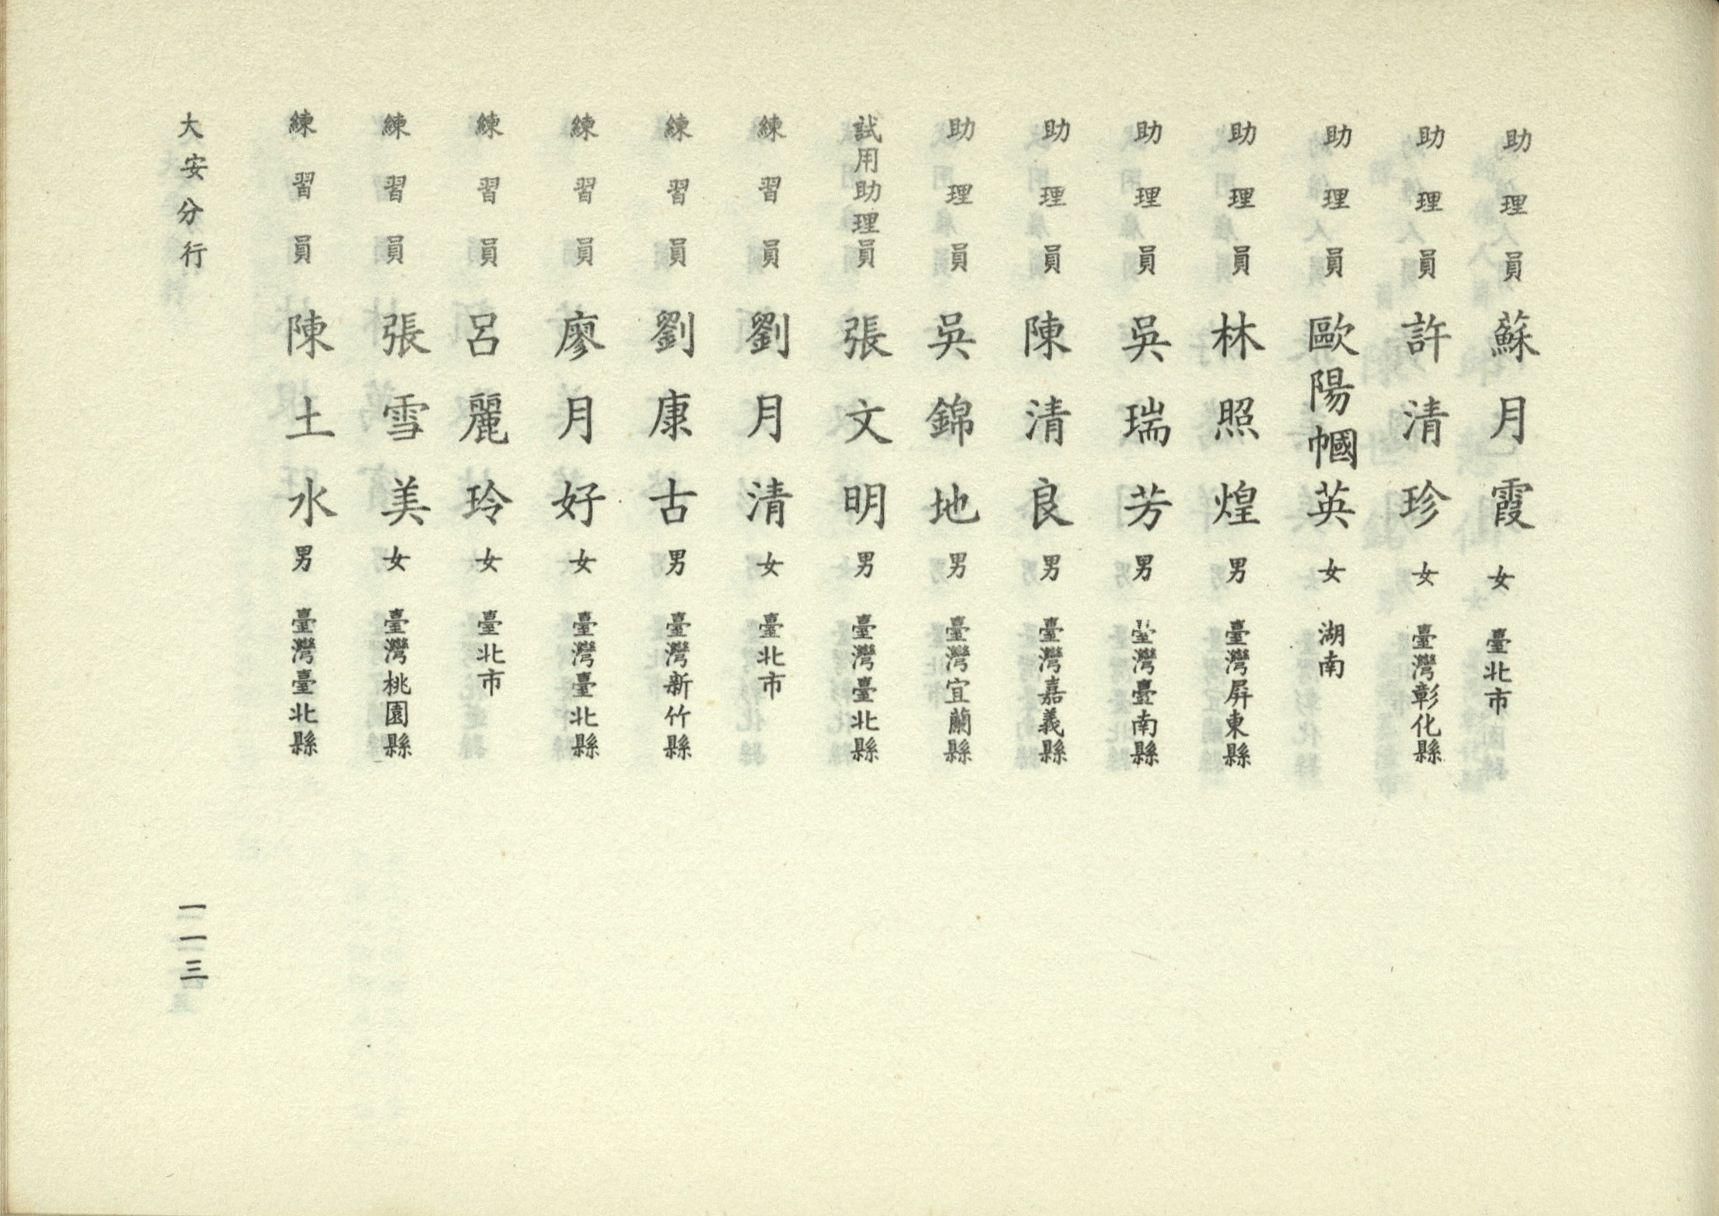 助理員 蘇月霞 女 臺北市
助理員 許清珍 女 臺灣彰化縣
助理員 歐陽幗英 女 湖南
助理員 林照煌 男 臺灣屏東縣
助理員 吳瑞芳 男 臺灣臺南縣
助理員 陳清良 男 臺灣嘉義縣
助理員 吳錦地 男 臺灣宜蘭縣
試用助理員 張文明 男 臺灣臺北縣
練習員 劉月清 女 臺北市
練習員 劉康古 男 臺灣新竹縣
練習員 廖月好 女 臺灣臺北縣
練習員 呂麗玲 女 臺北市
練習員 張雪美 女 臺灣桃園縣
練習員 陳土水 男 臺灣臺北縣
大安分行
一一三